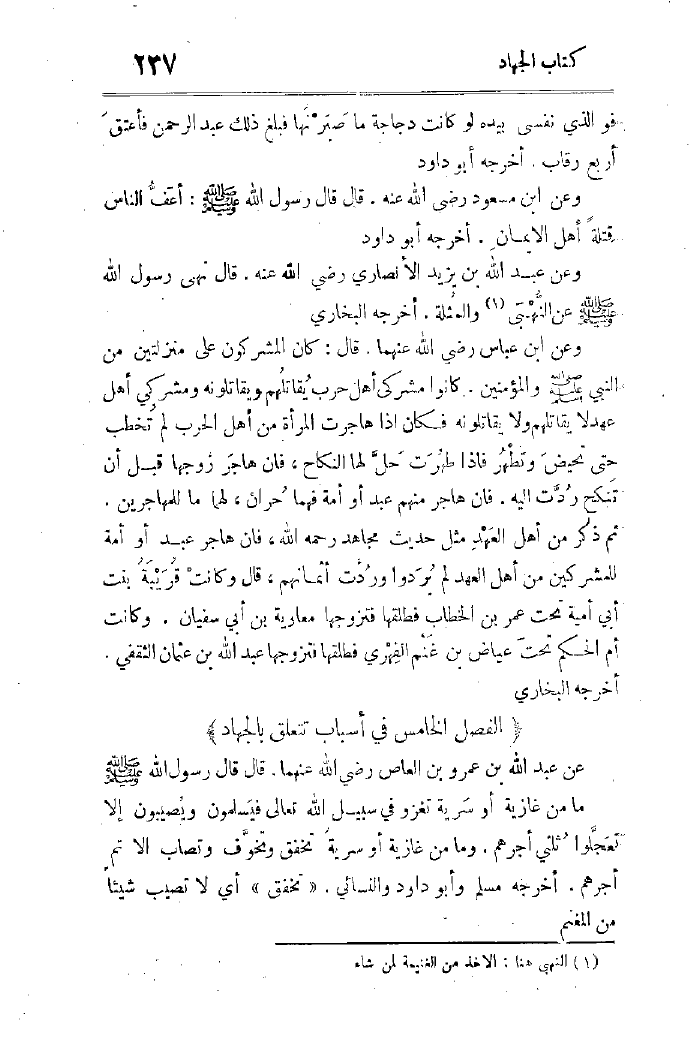 كتاب الجهاد ٢٣٧
فو الذي نفسى بيده لو كانت دجاجة ما صَبَرْتُها فبلغ ذلك عبد الرحمن فأعتقَ
أربع رقاب . أخرجه أبو داود
وعن ابن مسعود رضى الله عنه . قال قال رسول الله ﷺ : أعَفُّ الناس
قِتلةً أهل الايمـان . أخرجه أبو داود
وعن عبـد الله بن يزيد الأنصاري رضي الله عنه . قال نهى رسول الله
ﷺ عن النُّهْبَى (١) والمُثلة . أخرجه البخاري
وعن ابن عباس رضى الله عنهما . قال : كان المشركون على منزلتين من
النبي ﷺ والمؤمنين . كانوا مشركى أهل حرب يُقاتلهم ويقاتلونه ومشركي أهل
عهد لا يقاتلهم ولا يقاتلونه فـكان اذا هاجرت المرأة من أهل الحرب لم تُخطب
حتى تحيضَ وتَطْهُر فاذا طهُرَت حَلَّ لها النكاح ، فان هاجَر زوجها قبـل أن
تَنكح رُدَّت اليه . فان هاجر منهم عبد أو أمة فهما حُران ، لهما ما للمهاجرين .
ثم ذكر من أهل العَهْدِ مثل حديث مجاهد رحمه الله ، فان هاجر عبـد أو أمة
للمشركين من أهل العهد لم يُرَدوا ورُدَّت أثمـانهم ، قال وكانتْ قُرَيْبَةُ بنت
أبي أمية تحت عمر بن الخطاب فطلقها فتزوجها معاوية بن أبي سفيان . وكانت
أم الحـكم تحتَ عياض بن غَنْم الفِهْري فطلقها فتزوجها عبد الله بن عثمان الثقفي .
أخرجه البخاري
﴿ الفصل الخامس في أسباب تتعلق بالجهاد ﴾
عن عبد الله بن عمرو بن العاص رضي الله عنهما . قال قال رسول الله ﷺ
ما من غازية أو سَرية تغزو في سبيـل الله تعالى فيَسلمون ويُصيبون إلا
تَعَجَّلوا ثُلثي أجرهم . وما من غازية أو سريةُ تخفق وتخوَّف وتصاب الا تم
أجرهم . أخرجه مسلم وأبو داود والنسائي . « تخفق » أي لا تصيب شيئاً
من المغنم
(١) النهبي هنا : الاخذ من الغنيمة لمن شاء